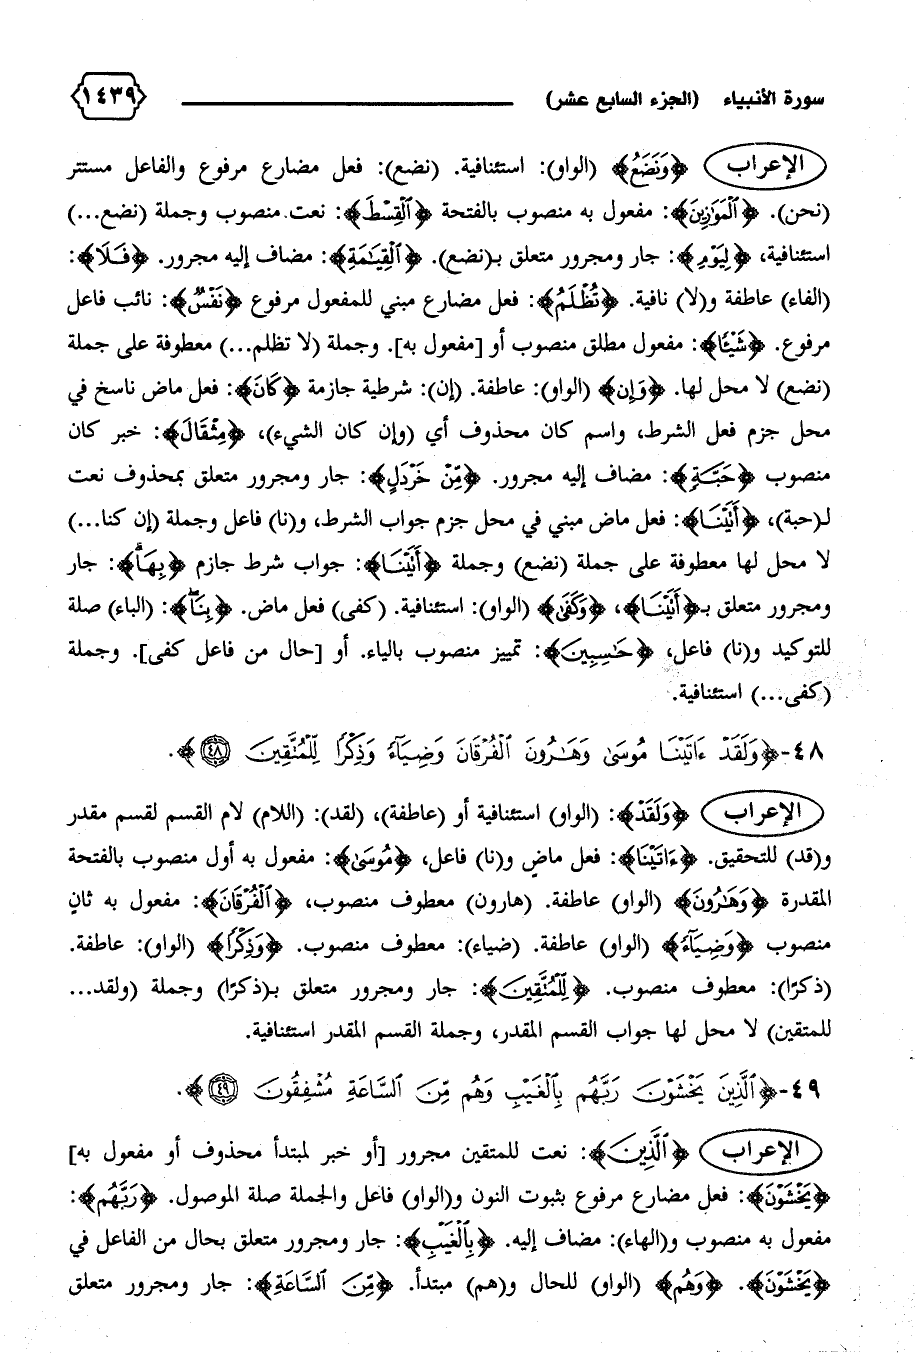 سورة الأنبياء (الجزء السابع عشر) ١٤٣٩
الإعراب ﴿وَنَضَعُ﴾ (الواو): استئنافية. (نضع): فعل مضارع مرفوع والفاعل مستتر
(نحن). ﴿ٱلْمَوَٰزِينَ﴾: مفعول به منصوب بالفتحة ﴿ٱلْقِسْطَ﴾: نعت منصوب وجملة (نضع...)
استئنافية، ﴿لِيَوْمِ﴾: جار ومجرور متعلق بـ(نضع). ﴿ٱلْقِيَٰمَةِ﴾: مضاف إليه مجرور. ﴿فَلَا﴾:
(الفاء) عاطفة و(لا) نافية. ﴿تُظْلَمُ﴾: فعل مضارع مبني للمفعول مرفوع ﴿نَفْسٌ﴾: نائب فاعل
مرفوع. ﴿شَيْـًٔا﴾: مفعول مطلق منصوب أو [مفعول به]. وجملة (لا تظلم...) معطوفة على جملة
(نضع) لا محل لها. ﴿وَإِن﴾ (الواو): عاطفة. (إن): شرطية جازمة ﴿كَانَ﴾: فعل ماض ناسخ في
محل جزم فعل الشرط، واسم كان محذوف أي (وإن كان الشيء)، ﴿مِثْقَالَ﴾: خبر كان
منصوب ﴿حَبَّةٍ﴾: مضاف إليه مجرور. ﴿مِّنْ خَرْدَلٍ﴾: جار ومجرور متعلق بمحذوف نعت
لـ(حبة)، ﴿أَتَيْنَا﴾: فعل ماض مبني في محل جزم جواب الشرط، و(نا) فاعل وجملة (إن كنا...)
لا محل لها معطوفة على جملة (نضع) وجملة ﴿أَتَيْنَا﴾: جواب شرط جازم ﴿بِهَاۗ﴾: جار
ومجرور متعلق بـ﴿أَتَيْنَا﴾، ﴿وَكَفَىٰ﴾ (الواو): استئنافية. (كفى) فعل ماض. ﴿بِنَا﴾: (الباء) صلة
للتوكيد و(نا) فاعل، ﴿حَٰسِبِينَ﴾: تمييز منصوب بالياء. أو [حال من فاعل كفى]. وجملة
(كفى...) استئنافية.
٤٨-﴿وَلَقَدْ ءَاتَيْنَا مُوسَىٰ وَهَٰرُونَ ٱلْفُرْقَانَ وَضِيَآءً وَذِكْرًا لِّلْمُتَّقِينَ ٤٨﴾.
الإعراب ﴿وَلَقَدْ﴾: (الواو) استئنافية أو (عاطفة)، (لقد): (اللام) لام القسم لقسم مقدر
و(قد) للتحقيق. ﴿ءَاتَيْنَا﴾: فعل ماضٍ و(نا) فاعل، ﴿مُوسَىٰ﴾: مفعول به أول منصوب بالفتحة
المقدرة ﴿وَهَٰرُونَ﴾ (الواو) عاطفة. (هارون) معطوف منصوب، ﴿ٱلْفُرْقَانَ﴾: مفعول به ثانٍ
منصوب ﴿وَضِيَآءً﴾ (الواو) عاطفة. (ضياء): معطوف منصوب. ﴿وَذِكْرًا﴾ (الواو): عاطفة.
(ذكرًا): معطوف منصوب. ﴿لِّلْمُتَّقِينَ﴾: جار ومجرور متعلق بـ(ذكرًا) وجملة (ولقد...
للمتقين) لا محل لها جواب القسم المقدر، وجملة القسم المقدر استئنافية.
٤٩-﴿ٱلَّذِينَ يَخْشَوْنَ رَبَّهُم بِٱلْغَيْبِ وَهُم مِّنَ ٱلسَّاعَةِ مُشْفِقُونَ ٤٩﴾.
الإعراب ﴿ٱلَّذِينَ﴾: نعت للمتقين مجرور [أو خبر لمبتدأ محذوف أو مفعول به]
﴿يَخْشَوْنَ﴾: فعل مضارع مرفوع بثبوت النون و(الواو) فاعل والجملة صلة الموصول. ﴿رَبَّهُم﴾:
مفعول به منصوب و(الهاء): مضاف إليه. ﴿بِٱلْغَيْبِ﴾: جار ومجرور متعلق بحال من الفاعل في
﴿يَخْشَوْنَ﴾. ﴿وَهُم﴾ (الواو) للحال و(هم) مبتدأ. ﴿مِّنَ ٱلسَّاعَةِ﴾: جار ومجرور متعلق